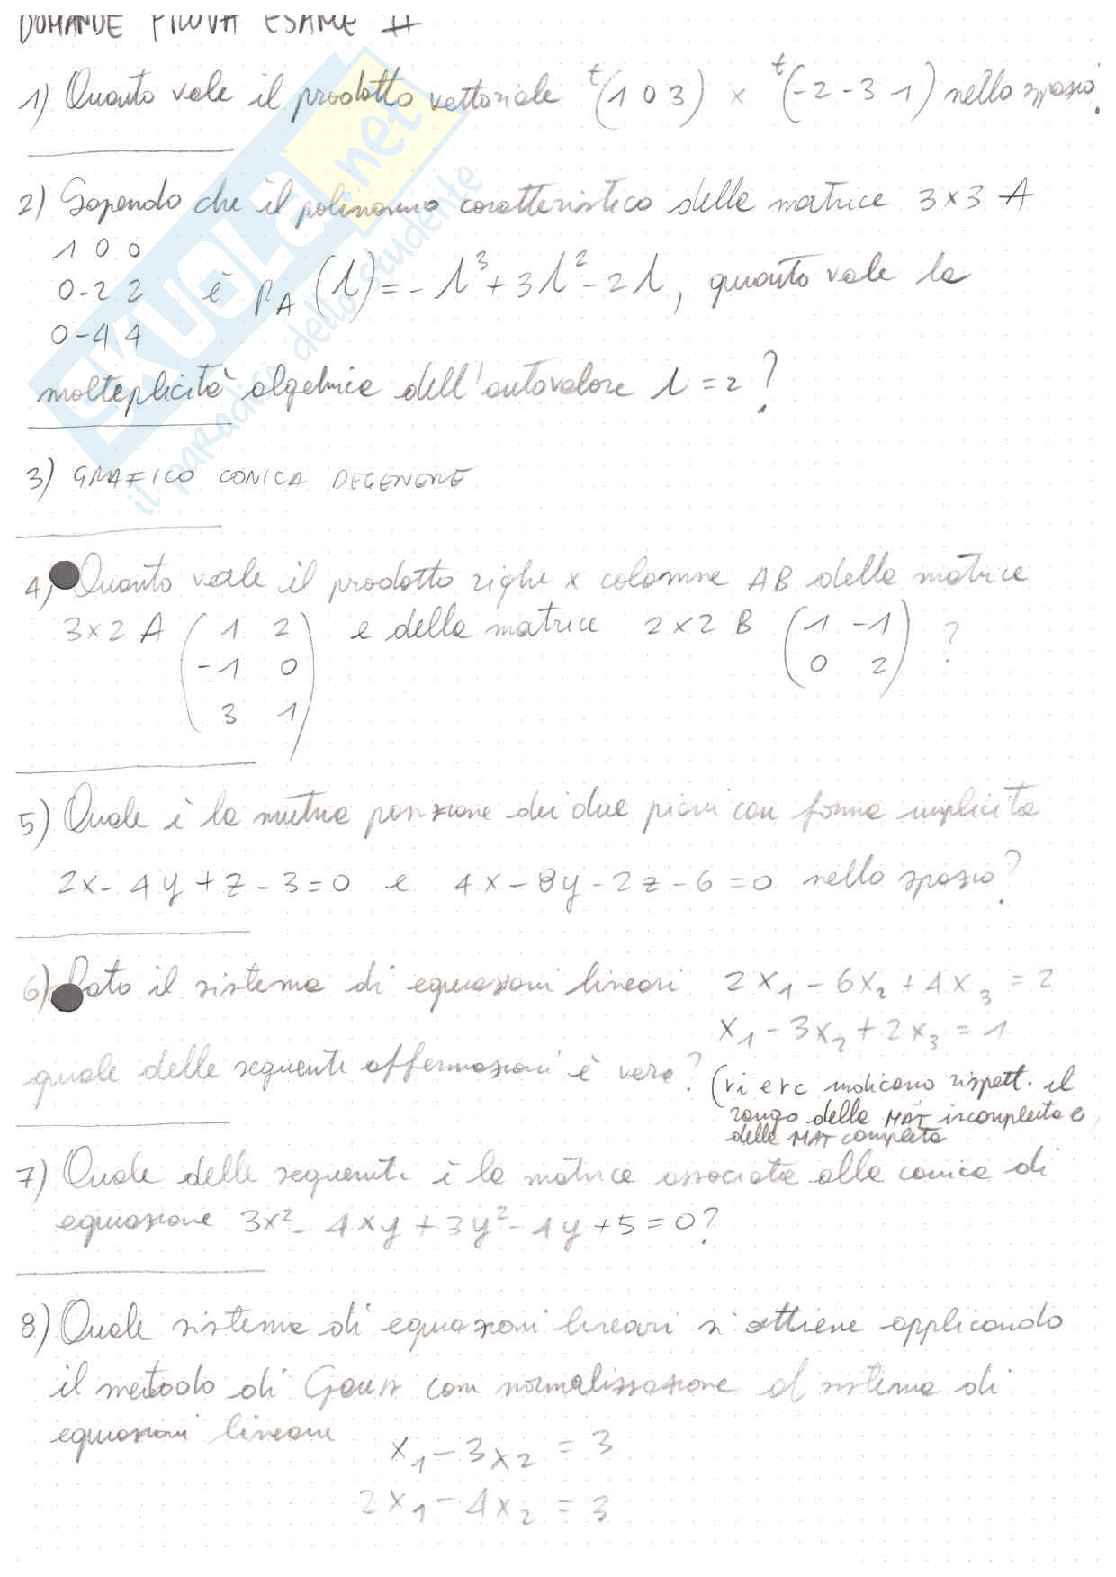 DOMANDE PROVA ESAME II
1) Quanto vale il prodotto vettoriale t(1 0 3) x t(-2 -3 1) nello spazio?
2) Sapendo che il polinomio caratteristico della matrice 3x3 A
1 0 0
0 -2 2 è PA (λ) = -λ³ + 3λ² - 2λ, quanto vale la
0 -4 4
molteplicità algebrica dell'autovalore λ = 2?
3) GRAFICO CONICA DEGENERE
4) Quanto vale il prodotto righe x colonne AB della matrice
3x2 A (1 2) e della matrice 2x2 B (1 -1) ?
-1 0 0 2
3 1
5) Quale è la mutua posizione dei due piani con forma implicita
2x - 4y + z - 3 = 0 e 4x - 8y - 2z - 6 = 0 nello spazio?
6) Dato il sistema di equazioni lineari 2x₁ - 6x₂ + 4x₃ = 2
x₁ - 3x₂ + 2x₃ = 1
quale delle seguenti affermazioni è vera? (ri e rc indicano rispett. il
rango della MAT incompleta e
della MAT completa
7) Quale delle seguenti è la matrice associata alla conica di
equazione 3x² - 4xy + 3y² - 4y + 5 = 0?
8) Quale sistema di equazioni lineari si ottiene applicando
il metodo di Gauss con normalizzazione al sistema di
equazioni lineari
x₁ - 3x₂ = 3
2x₁ - 4x₂ = 3
SKUOLA.net
il paradiso dello studente